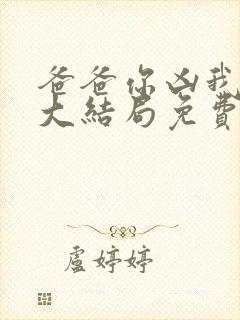 爸爸你凶我
大結局免費
盧婷婷